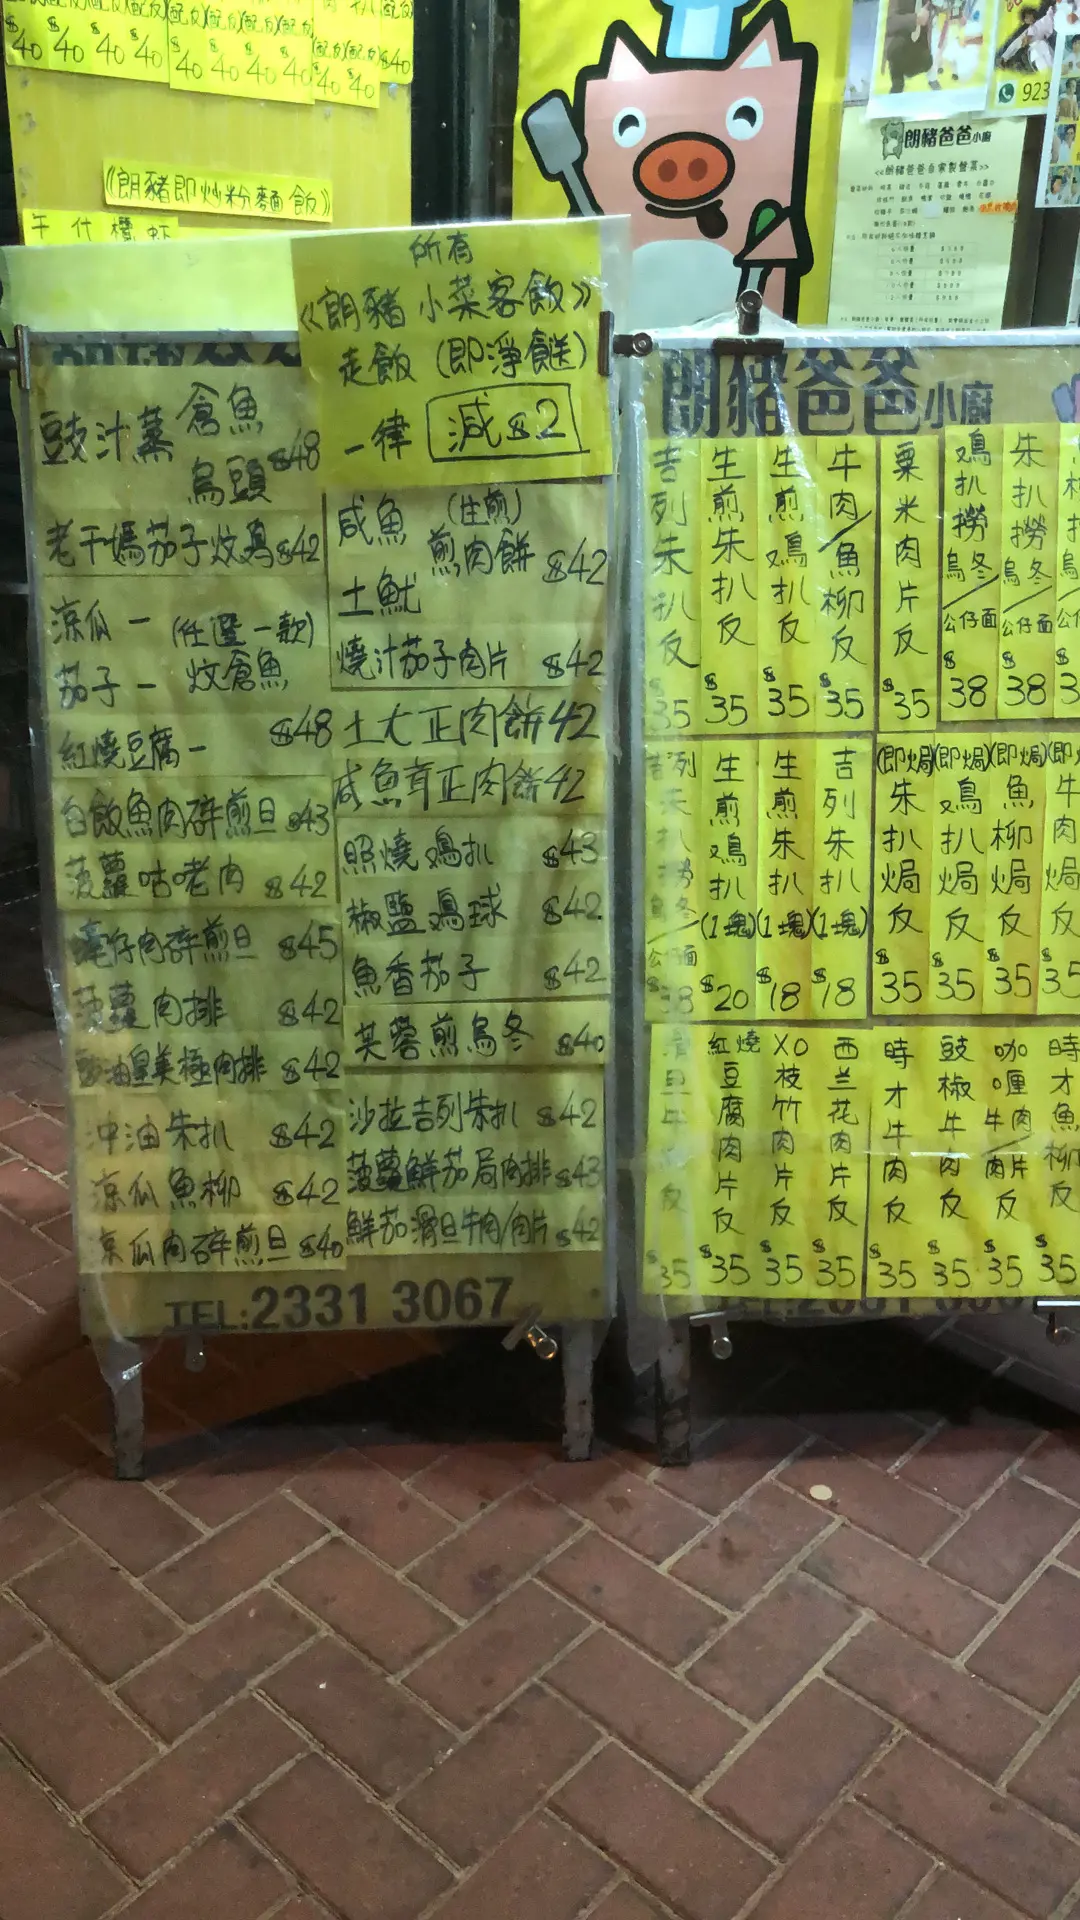 $40 $40 $40 $40 $40 $40 $40 $40 $40 $40
《朗豬即炒粉麵飯》
923
朗豬爸爸小廚
<<朗豬爸爸自家製盤菜>>
所有
《朗豬小菜客飯》
走飯(即淨餸)
一律 減$2
豉汁蒸 倉魚
烏頭 $48
老干媽茄子炆鳮 $42
涼瓜一 (任選一款)
茄子一 炆倉魚
紅燒豆腐一 $48
白飯魚肉碎煎旦 $43
菠蘿咕咾肉 $42
蠔仔肉碎煎旦 $45
菠蘿肉排 $42
豉油皇美極肉排 $42
沖油朱扒 $42
涼瓜魚柳 $42
涼瓜肉碎煎旦 $40
咸魚 (生煎)
土魷 煎肉餅 $42
燒汁茄子肉片 $42
土尤正肉餅 42
咸魚茸正肉餅 42
照燒鳮扒 $43
椒鹽鳮球 $42
魚香茄子 $42
芙蓉煎烏冬 $40
沙拉吉列朱扒 $42
菠蘿鮮茄局肉排 $43
鮮茄滑旦牛肉/肉片 $42
TEL:2331 3067
朗豬爸爸小廚
吉列朱扒反 $35
生煎朱扒反 $35
生煎鳮扒反 $35
牛肉/魚柳反 $35
粟米肉片反 $35
鳮扒撈烏冬/公仔面 $38
朱扒撈烏冬/公仔面 $38
吉列朱扒撈烏冬/公仔面 $38
生煎鳮扒(1塊) $20
生煎朱扒(1塊) $18
吉列朱扒(1塊) $18
(即焗)朱扒焗反 $35
(即焗)鳮扒焗反 $35
(即焗)魚柳焗反 $35
(即 牛肉焗 $35
滑旦牛 反 $35
紅燒豆腐肉片反 $35
XO枝竹肉片反 $35
西兰花肉片反 $35
時才牛肉反 $35
豉椒牛肉反 $35
咖喱牛肉/肉片反 $35
時才魚柳反 $35